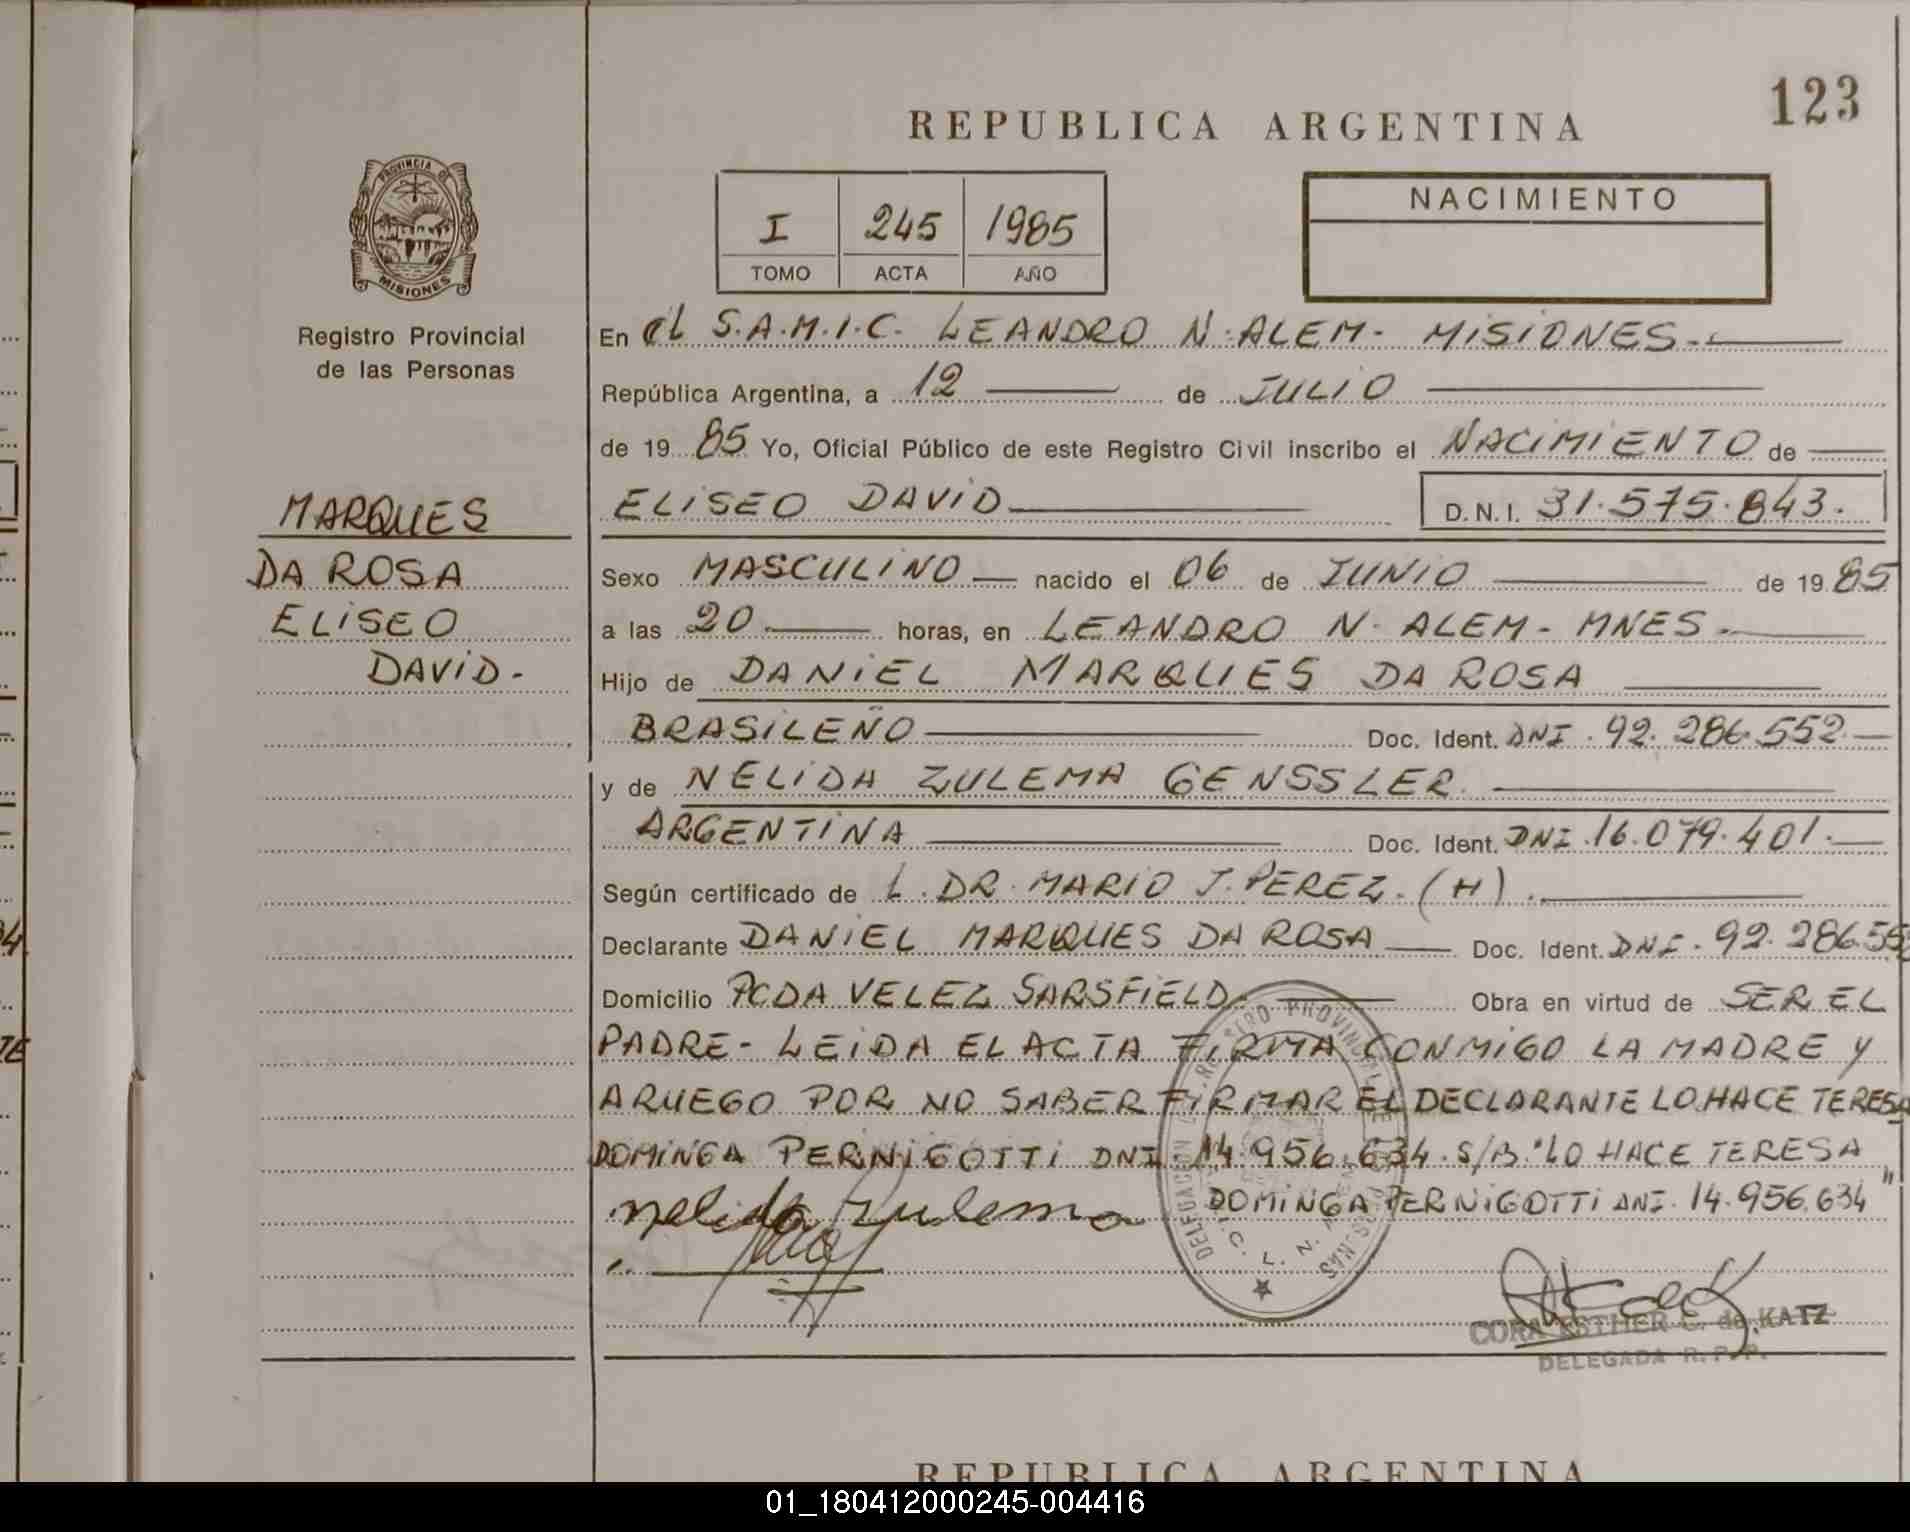 123
REPUBLICA ARGENTINA
PROVINCIA DE
MISIONES
Registro Provincial
de las Personas
I 245 1985
TOMO ACTA AÑO
NACIMIENTO
MARQUES
DA ROSA
ELISEO
DAVID.-
En el S.A.M.I.C. LEANDRO N. ALEM- MISIONES.-
República Argentina, a 12 de JULIO
de 19 85 Yo, Oficial Público de este Registro Civil inscribo el NACIMIENTO de
ELISEO DAVID D.N.I. 31.575.843.
Sexo MASCULINO nacido el 06 de JUNIO de 19 85
a las 20 horas, en LEANDRO N. ALEM- MNES.-
Hijo de DANIEL MARQUES DA ROSA
BRASILEÑO Doc. Ident. DNI. 92.286.552
y de NELIDA ZULEMA GENSSLER
ARGENTINA Doc. Ident. DNI. 16.079.401.
Según certificado de L. DR. MARIO J. PEREZ. (H).
Declarante DANIEL MARQUES DA ROSA Doc. Ident. DNI. 92.286.55
Domicilio PCDA VELEZ SARSFIELD.- Obra en virtud de SER EL
PADRE- LEIDA EL ACTA FIRMA CONMIGO LA MADRE Y
ARUEGO POR NO SABER FIRMAR EL DECLARANTE LO HACE TERESA
DOMINGA PERNIGOTTI DNI 14.956.634. S/B. "LO HACE TERESA
DOMINGA PERNIGOTTI DNI. 14.956.634"
Nelida Zulema
CORA ESTHER C. de KATZ
DELEGADA R. P. P.
REPUBLICA ARGENTINA
01_180412000245-004416